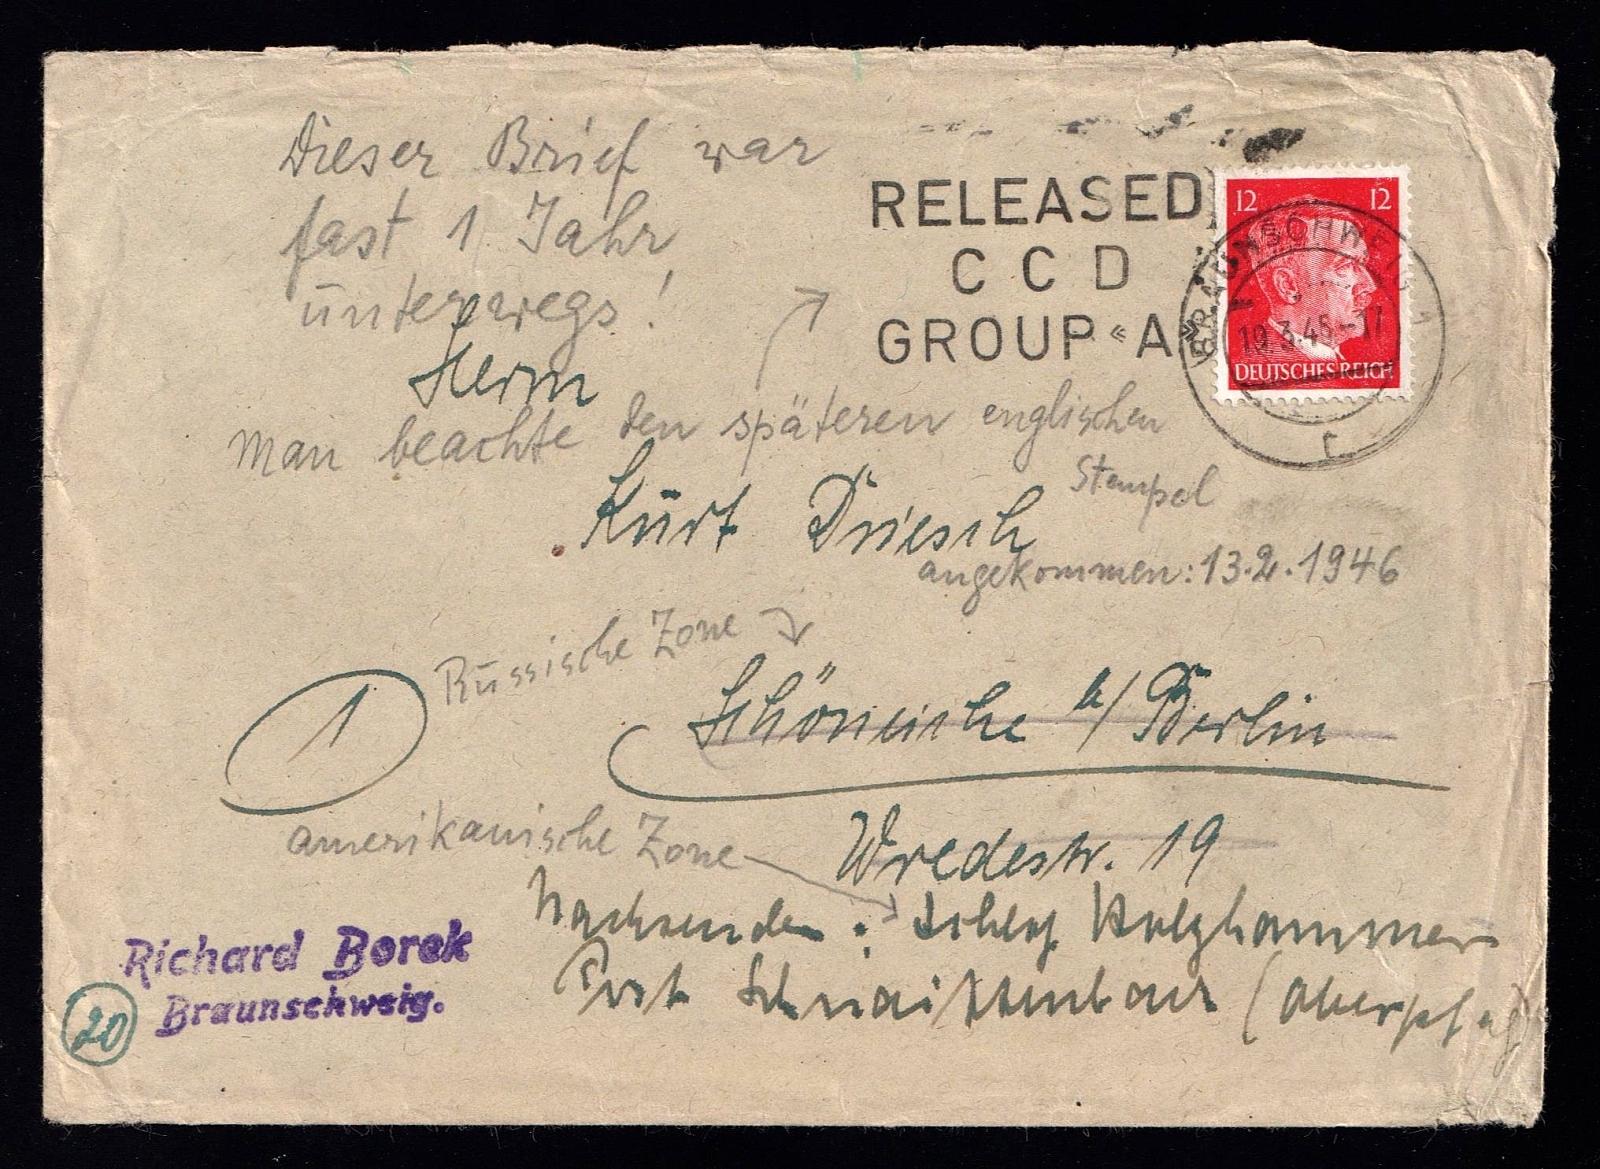 Dieser Brief war
fast 1 Jahr
unterwegs!
RELEASED
C C D
GROUP «A»
12 12
DEUTSCHES REICH
BRAUNSCHWEIG
10.3.45.-17
c
Herrn
man beachte den späteren englischen
Stempel
Kurt Driesch
angekommen: 13.2.1946
Russische Zone
1
Schöneiche b/ Berlin
amerikanische Zone
Wredestr. 19
Nachsenden: Schloß Holzhammer
Post Schnaittenbach (Oberpfalz)
Richard Borek
Braunschweig.
20